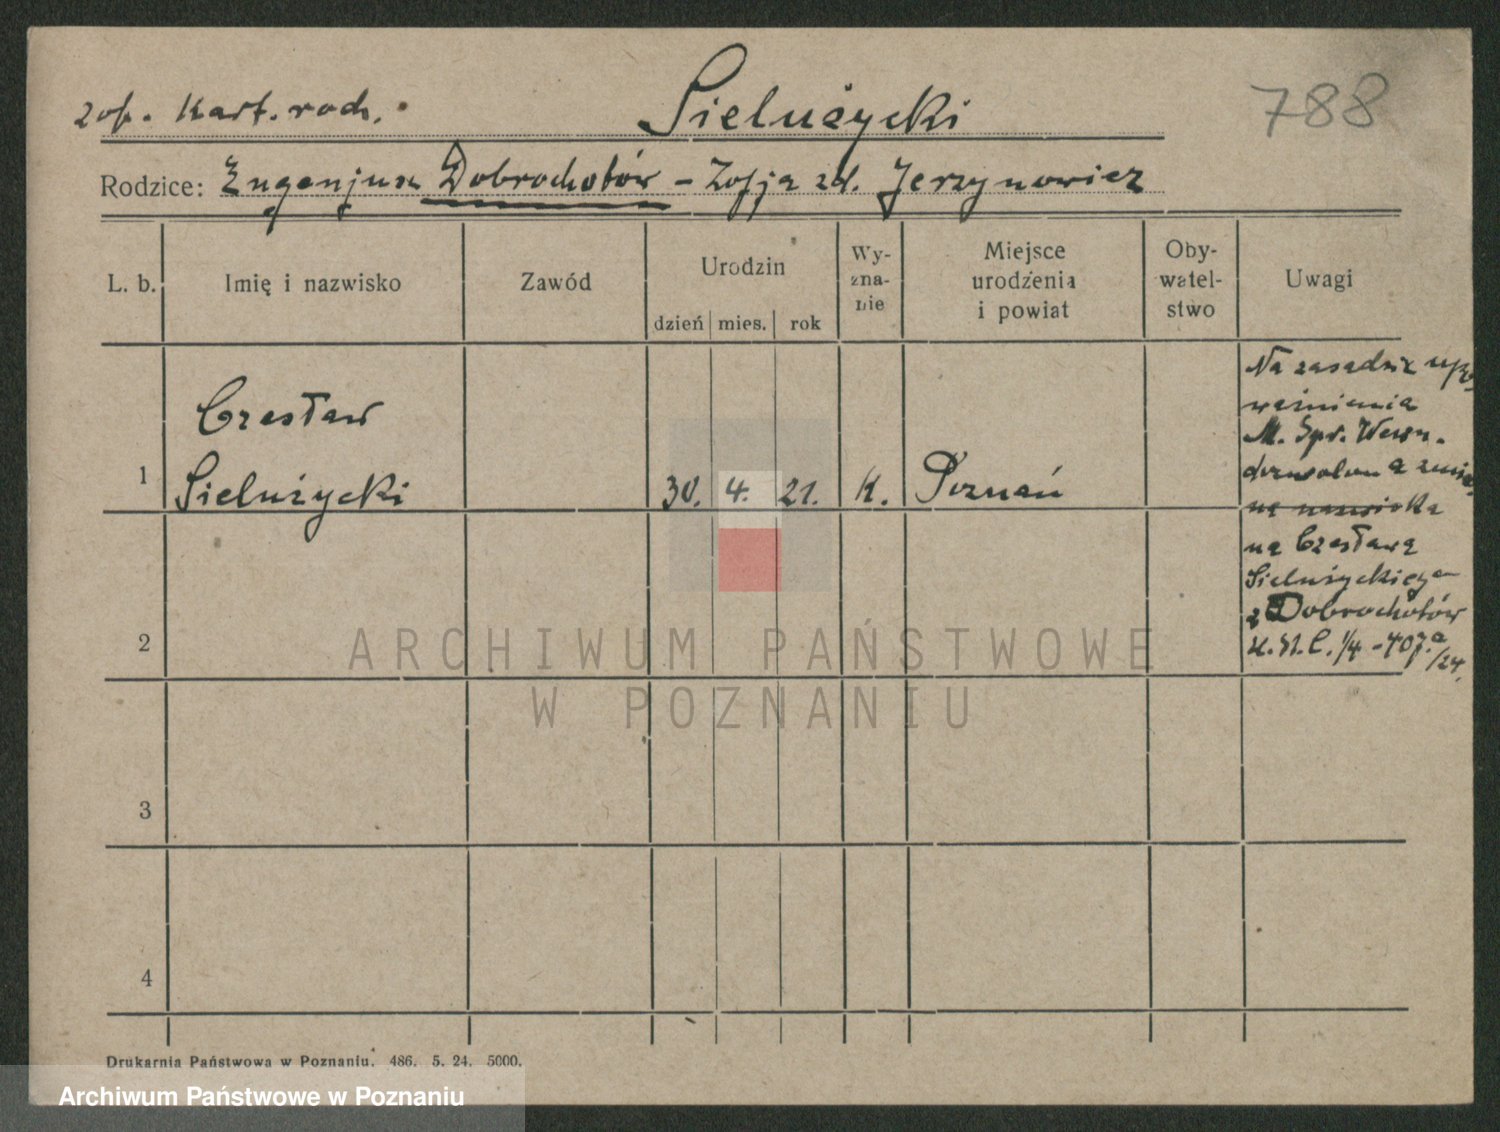 zob. Kart. rodz. Sielużycki 788
Rodzice: Eugenjusz Dobrochotów - Zofja zd. Jerzynowicz
L. b. Imię i nazwisko Zawód Urodzin dzień mies. rok Wy-zna-nie Miejsce urodzenia i powiat Oby-watel-stwo Uwagi
1 Czesław
Sielużycki 30. 4. 21. K. Poznań
Na zasadzie upo
ważnienia
M. Spr. Wewn.
dozwolona zmia
na nazwiska
na Czesława
Sielużyckiego
z Dobrochotów
1/4 -407.a
/24.
2
3
4
ARCHIWUM PAŃSTWOWE
W POZNANIU
Drukarnia Państwowa w Poznaniu. 486. 5. 24. 5000.
Archiwum Państwowe w Poznaniu